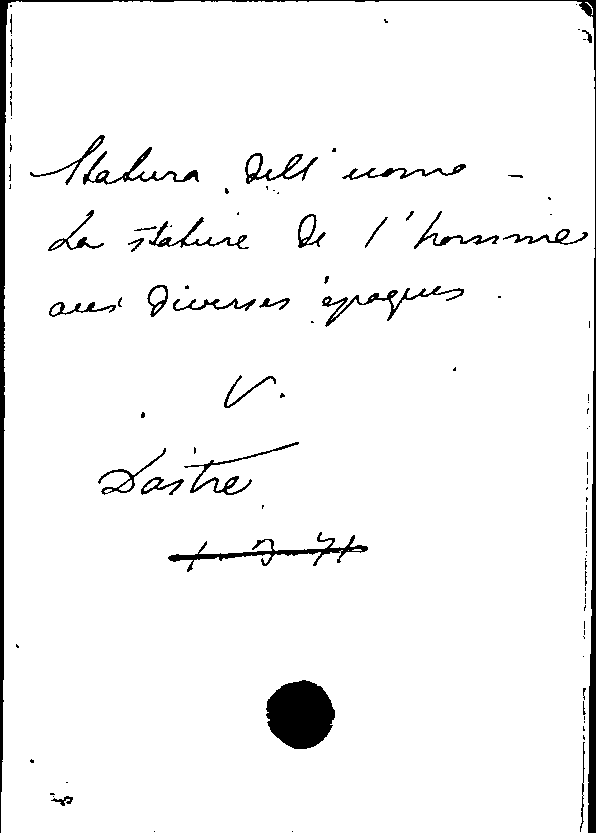 Statura dell'uomo -
La stature de l'homme
aux diverses époques.
V.
Dastre